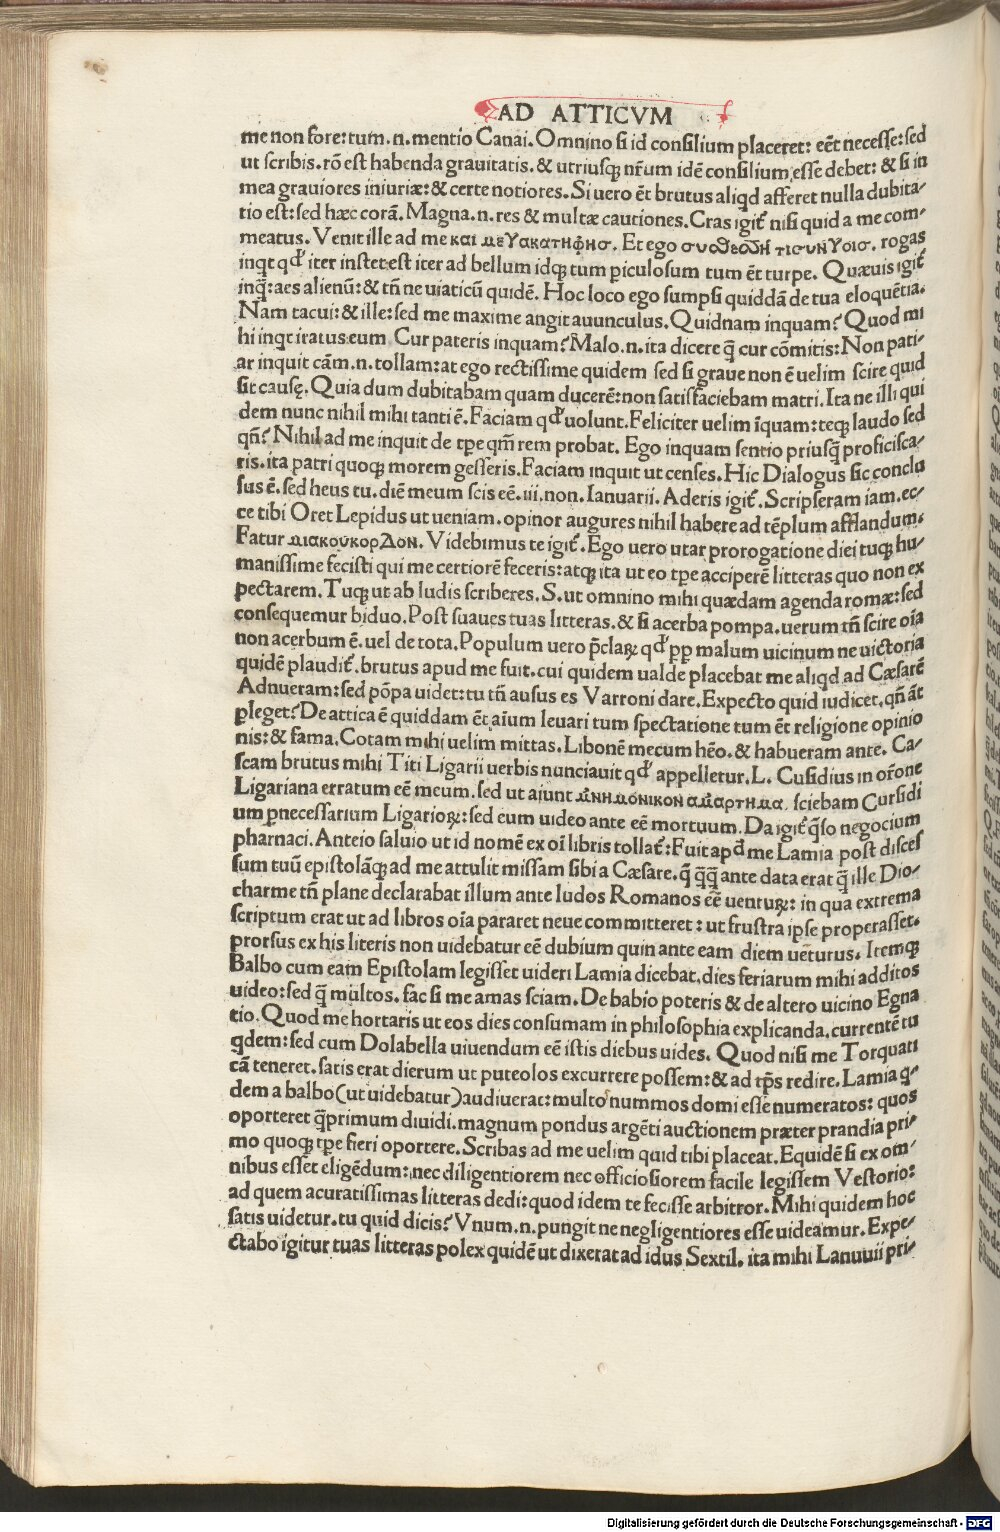 AD ATTICVM
me non fore: tum .n. mentio Canai. Omnino si id consilium placeret: eēt necesse: sed
ut scribis. rō est habenda grauitatis. & utriusq; nr̄um idē consilium esse debet: & si in
mea grauiores iniuriæ: & certe notiores. Si uero ēt brutus aliqd afferet nulla dubita-
tio est: sed hæc corā. Magna .n. res & multæ cautiones. Cras igit̄ nisi quid a me com-
meatus. Venit ille ad me και μεγακατηφησ. Et ego rogas
inqt qđ iter instet: est iter ad bellum idq; tum piculosum tum ēt turpe. Quæuis igit̄
inq̄: aes alienū: & tn̄ ne uiaticū quidē. Hoc loco ego sumpsi quiddā de tua eloquētia.
Nam tacui: & ille: sed me maxime angit auunculus. Quidnam inquam? Quod mi
hi inqt iratus: eum Cur pateris inquam? Malo .n. ita dicere q̄ cur cōmitis: Non pati-
ar inquit cām .n. tollam: at ego rectissime quidem sed si graue non ē uelim scire quid
sit causę. Quia dum dubitabam quam ducerē: non satisfaciebam matri. Ita ne illi qui
dem nunc nihil mihi tanti ē. Faciam qđ uolunt. Feliciter uelim īquam: teq; laudo sed
qn̄? Nihil ad me inquit de tp̄e qm̄ rem probat. Ego inquam sentio priusq̄ proficisca-
ris. ita patri quoq; morem gesseris. Faciam inquit ut censes. Hic Dialogus sic conclu
sus ē. sed heus tu. diē meum scis eē. iii. non. Ianuarii. Aderis igit̄. Scripseram iam. ec-
ce tibi Oret Lepidus ut ueniam. opinor augures nihil habere ad tēplum afflandum.
Fatur μιακουκορΔον. Videbimus te igit̄. Ego uero utar prorogatione diei tuq; hu-
manissime fecisti qui me certiorē feceris: atq; ita ut eo tp̄e acciperē litteras quo non ex
pectarem. Tuq; ut ab ludis scriberes. S. ut omnino mihi quædam agenda romæ: sed
consequemur biduo. Post suaues tuas litteras. & si acerba pompa. uerum tn̄ scire oīa
non acerbum ē. uel de tota. Populum uero p̄claꝝ qđ pp malum uicinum ne uictoria
quidē plaudit̄. brutus apud me fuit. cui quidem ualde placebat me aliqd ad Cæsarē
Adnueram: sed pōpa uidet: tu tn̄ ausus es Varroni dare. Expecto quid iudicet. qn̄ āt
pleget? De attica ē quiddam ēt aīum leuari tum spectatione tum ēt religione opinio
nis: & fama. Cotam mihi uelim mittas. Libonē mecum hēo. & habueram ante. Ca-
scam brutus mihi Titi Ligarii uerbis nunciauit qđ appelletur. L. Cusidius in or̄one
Ligariana erratum eē meum. sed ut aiunt μνημονικον αμαρτημα. sciebam Cursidi
um pnecessarium Ligarioꝝ: sed eum uideo ante eē mortuum. Da igit̄ q̄so negocium
pharnaci. Anteio saluio ut id nomē ex oī libris tollat̄: Fuit apđ me Lamia post disces
sum tuū epistolāq; ad me attulit missam sibi a Cæsare. q̄ q̄q̄ ante data erat q̄ ille Dio-
charme tn̄ plane declarabat illum ante ludos Romanos eē uentuꝝ: in qua extrema
scriptum erat ut ad libros oīa pararet neue committeret: ut frustra ipse properasset.
prorsus ex his literis non uidebatur eē dubium quin ante eam diem uēturus. Itemq;
Balbo cum eam Epistolam legisset uideri Lamia dicebat. dies feriarum mihi additos
uideo: sed q̄ multos. fac si me amas sciam. De babio poteris & de altero uicino Egna
tio. Quod me hortaris ut eos dies consumam in philosophia explicanda. currentē tu
qdem: sed cum Dolabella uiuendum eē istis diebus uides. Quod nisi me Torquati
cā teneret. satis erat dierum ut puteolos excurrere possem: & ad tp̄s redire. Lamia q-
dem a balbo (ut uidebatur) audiuerat: multo nummos domi esse numeratos: quos
oporteret q̄primum diuidi. magnum pondus argēti auctionem præter prandia pri-
mo quoq; tp̄e fieri oportere. Scribas ad me uelim quid tibi placeat. Equidē si ex om-
nibus esset eligēdum: nec diligentiorem nec officiosiorem facile legissem Vestorio:
ad quem acuratissimas litteras dedi: quod idem te fecisse arbitror. Mihi quidem hoc
satis uidetur. tu quid dicis? Vnum .n. pungit ne negligentiores esse uideamur. Expe-
ctabo igitur tuas litteras polex quidē ut dixerat ad idus Sextil. ita mihi Lanuuii pri-
Digitalisierung gefördert durch die Deutsche Forschungsgemeinschaft - DFG